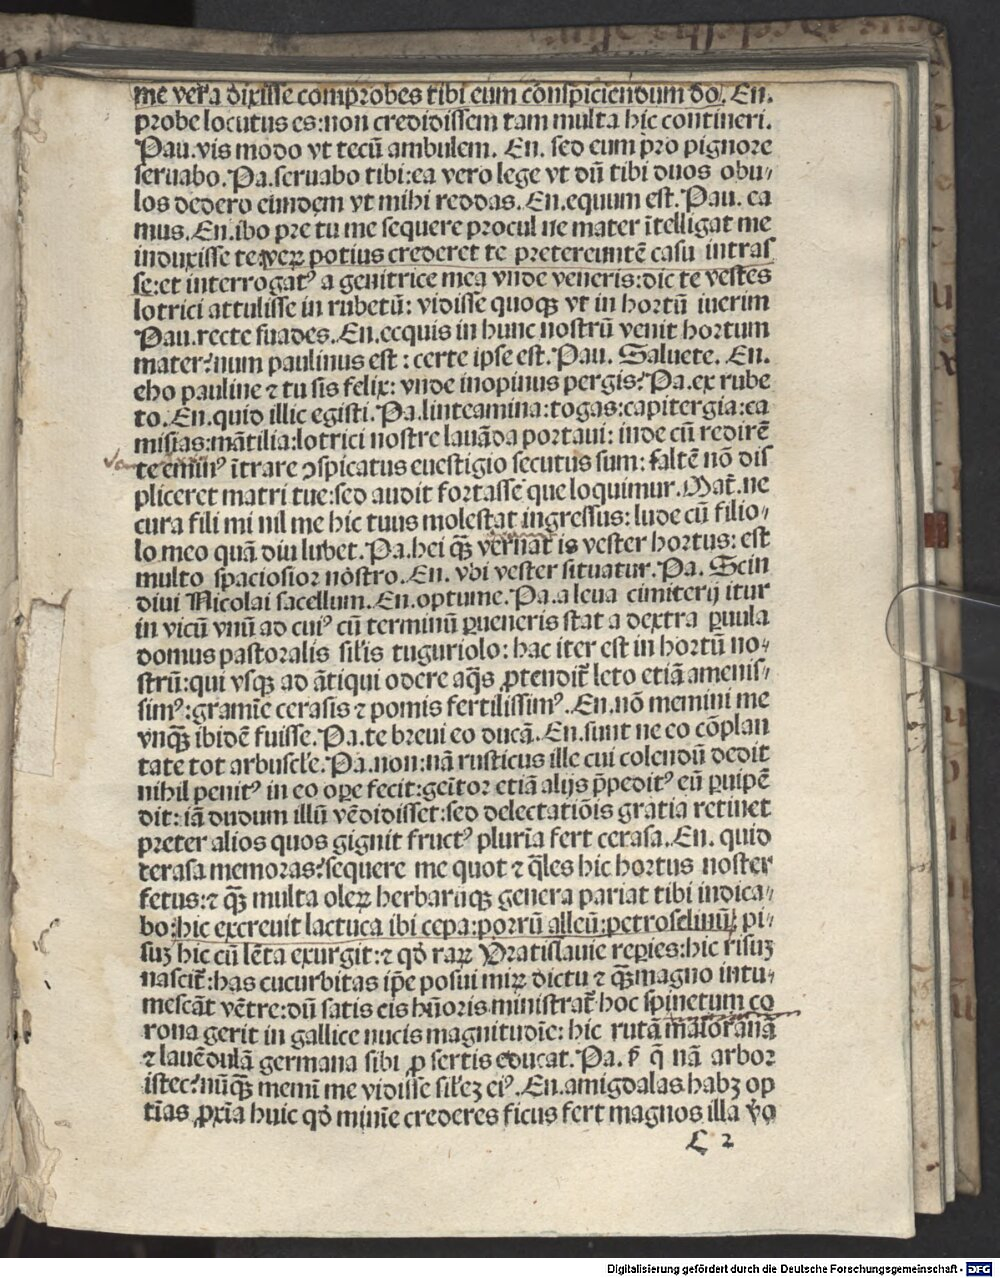 me vera dixisse comprobes tibi eum conspiciendum do. En.
probe locutus es: non credidissem tam multa hic contineri.
Pau. vis modo vt tecū ambulem. En. sed eum pro pignore
seruabo. Pa. seruabo tibi: ea vero lege vt dū tibi duos obu⸗
los dedero eundem vt mihi reddas. En. equum est. Pau. ea
mus. En. ibo pre tu me sequere procul ne mater ītelligat me
induxisse te: veꝝ potius crederet te pretereuntē casu intras
se: et interrogatꝰ a genitrice mea vnde veneris: dic te vestes
lotrici attulisse in rubetū: vidisse quoqꝫ vt in hortū iuerim
Pau. recte suades. En. ecquis in hunc nostrū venit hortum
mater? num paulinus est: certe ipse est. Pau. Saluete. En.
eho pauline ⁊ tu sis felix: vnde inopinus pergis? Pa. ex rube
to. En. quid illic egisti. Pa. linteamina: togas: capitergia: ca
misias: mātilia: lotrici nostre lauāda portaui: inde cū redirē
te eminꝰ ītrare ꝯspicatus euestigio secutus sum: saltē nō dis
pliceret matri tue: sed audit fortasse que loquimur. Mat̄. ne
cura fili mi nil me hic tuus molestat ingressus: lude cū filio⸗
lo meo quā diu lubet. Pa. hei qꝫ vernat is vester hortus: est
multo spaciosior nostro. En. vbi vester situatur. Pa. Scin
diui Nicolai sacellum. En. optume. Pa. a leua cimiterij itur
in vicū vnū ad cuiꝰ cū terminū ꝑueneris stat a dextra ꝑuula
domus pastoralis sil̄is tuguriolo: hac iter est in hortū no⸗
strū: qui vsqꝫ ad ātiqui odere aq̄s ꝓtendit̄ leto etiā amenis⸗
simꝰ: gramīe cerasis ⁊ pomis fertilissimꝰ. En. nō memini me
vnqꝫ ibidē fuisse. Pa. te breui eo ducā. En. sunt ne eo cōplan
tate tot arbuscl̄e. Pa. non: nā rusticus ille cui colendū dedit
nihil penitꝰ in eo oꝑe fecit: geīt̄or etiā alijs p̄peditꝰ eū ꝑuipē
dit: iā dudum illū vēdidisset: sed delectatiōis gratia retinet
preter alios quos gignit fructꝰ plurīa fert cerasa. En. quid
cerasa memoras? sequere me quot ⁊ q̄les hic hortus noster
fetus: ⁊ qꝫ multa oleꝝ herbarūqꝫ genera pariat tibi indica⸗
bo: hic excreuit lactuca ibi cepa: porrū alleū: petroselinū: pi⸗
suꝫ hic cū lēta exurgit: ⁊ qd̄ raꝝ Vratislauie reꝑies: hic risuꝫ
nascit̄: has cucurbitas ip̄e posui miꝝ dictu ⁊ qꝫ magno intu⸗
mescāt vētre: dū satis eis hūoris ministrat̄ hoc spinetum co
rona gerit in gallice nucis magnitudīe: hic rutā maioranā
⁊ lauēdulā germana sibi ꝓ sertis educat. Pa. q̄ nā arbor
istec? nūqꝫ memī me vidisse sil̄eꝫ eiꝰ. En. amigdalas habꝫ op
tīas ꝓxīa huic qd̄ minīe crederes ficus fert magnos illa v̄o
c 2
Digitalisierung gefördert durch die Deutsche Forschungsgemeinschaft - DFG